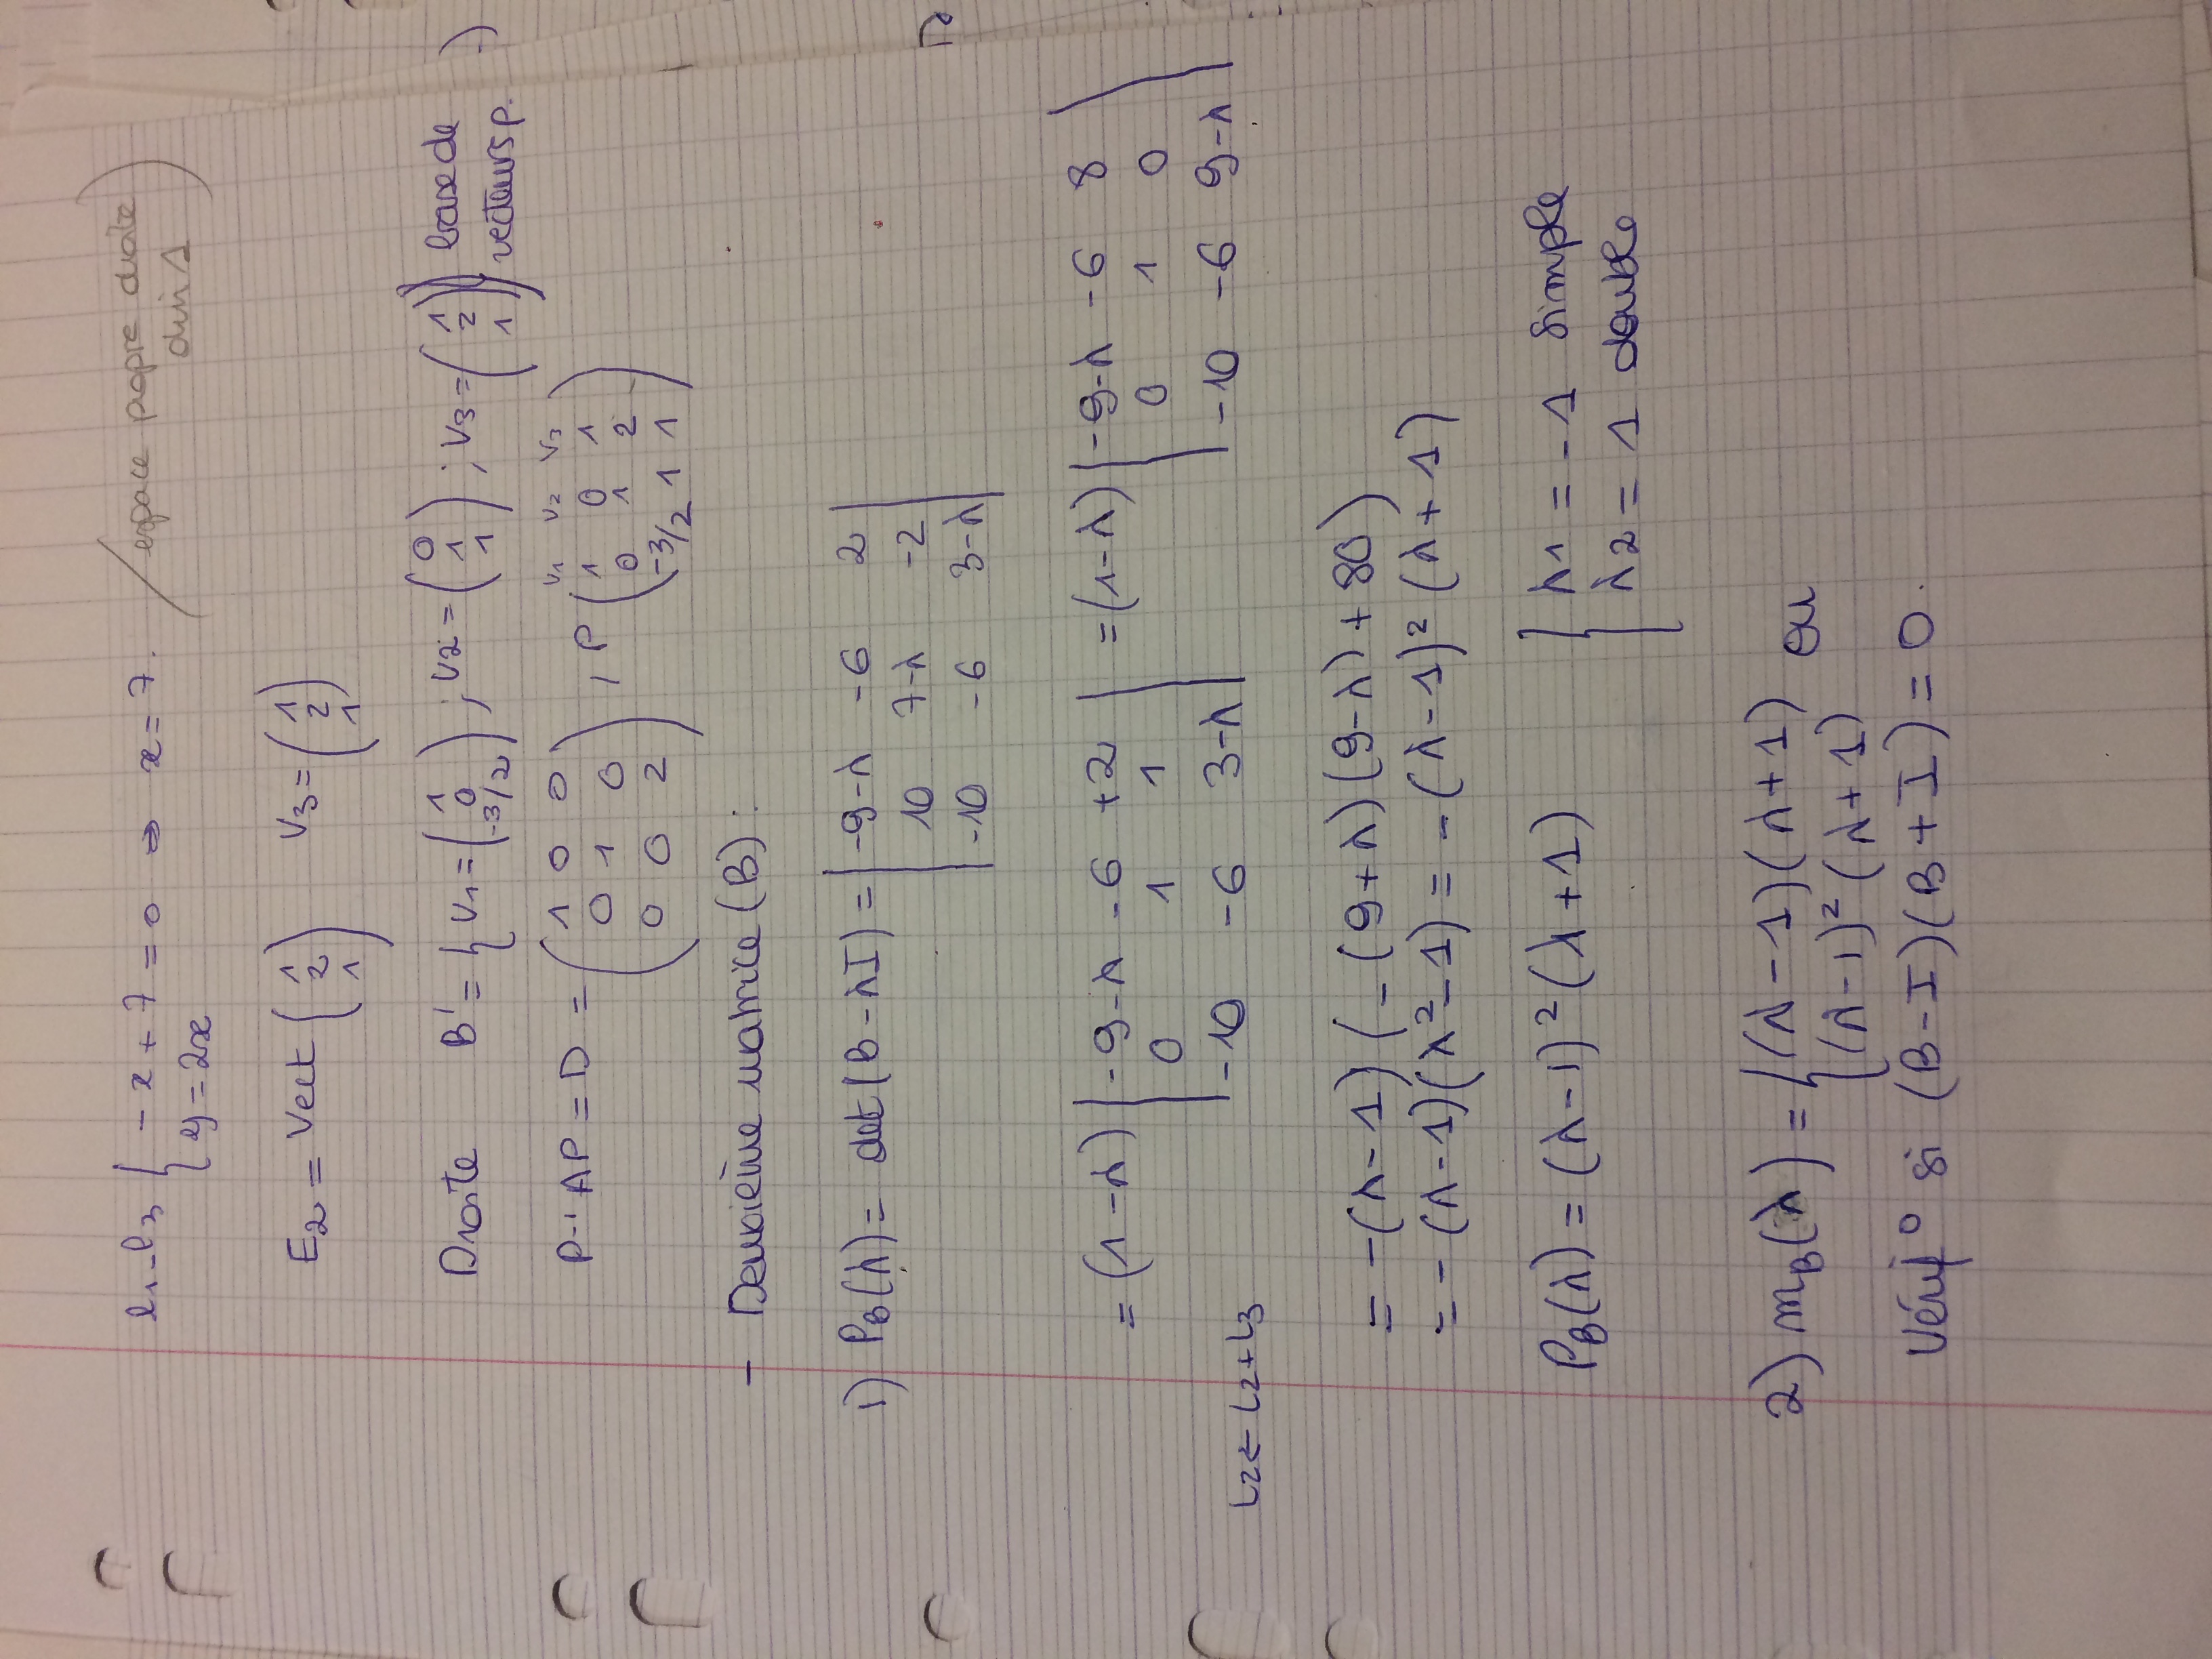 l1-l3 { -x + z = 0 => x = z. (espace propre droite
{ y = 2x dim 1)
E2 = Vect (1 2 1) V3 = (1 2 1)
Droite B' = { V1 = (1 0 -3/2) ; V2 = (0 1 1) ; V3 = (1 2 1) } base de vecteurs p.
P-1 AP = D = (1 0 0 , P ( V1 V2 V3
0 1 0 1 0 1
0 0 2) 0 1 2
-3/2 1 1)
- Deuxième matrice (B) :
1) PB(λ) = det(B - λI) = | -9-λ -6 2 |
| 10 7-λ -2 |
| -10 -6 3-λ |
= (1-λ) | -9-λ -6 +2 | = (1-λ) | -9-λ -6 8 |
| 0 1 1 | | 0 1 0 |
| -10 -6 3-λ | | -10 -6 9-λ |
L2 ← L2+L3
= -(λ-1) (-(9+λ)(9-λ) + 80)
= -(λ-1)(λ²-1) = -(λ-1)² (λ+1)
PB(λ) = (λ-1)² (λ+1) { λ1 = -1 simple
{ λ2 = 1 double
2) mB(λ) = { (λ-1)(λ+1) ou
{ (λ-1)² (λ+1)
Vérif° si (B-I)(B+I) = 0.